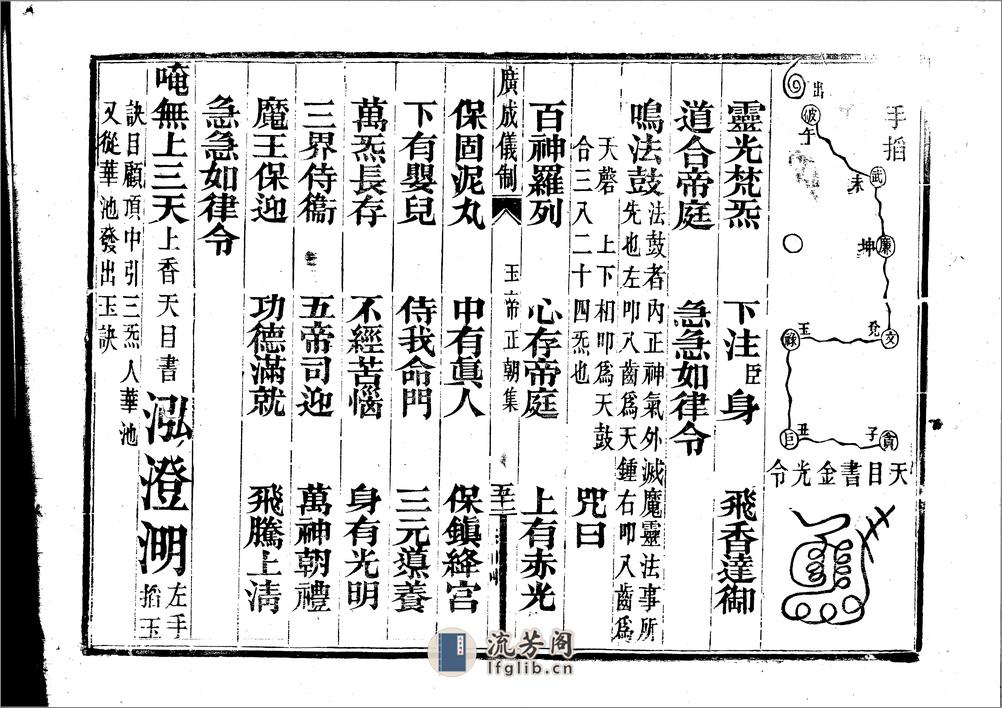 手搯
出
破
午
武
未
廉
坤
文
兌
祿
玉
巨
丑
貪
子
天目書金光令
靈光梵炁 下注臣身 飛香達御
道合帝庭 急急如律令
鳴法鼓 法鼓者內正神氣外滅魔靈法事所
先也左叩八齒爲天鍾右叩八齒爲
天磬 上下相叩爲天鼓
合三八二十四炁也 咒曰
百神羅列 心存帝庭 上有赤光
廣成儀制 玉帝正朝集
保固泥丸 中有眞人 保鎮絳宮
下有嬰兒 侍我命門 三元㯳養
萬炁長存 不經苦惱 身有光明
三界侍衞 五帝司迎 萬神朝禮
魔王保迎 功德滿就 飛騰上清
急急如律令
唵無上三天 上香天目書 泓澄淵 左手
搯玉
訣目顧頂中引三炁人華池
又從華池發出玉訣
流芳阁
lfglib.cn